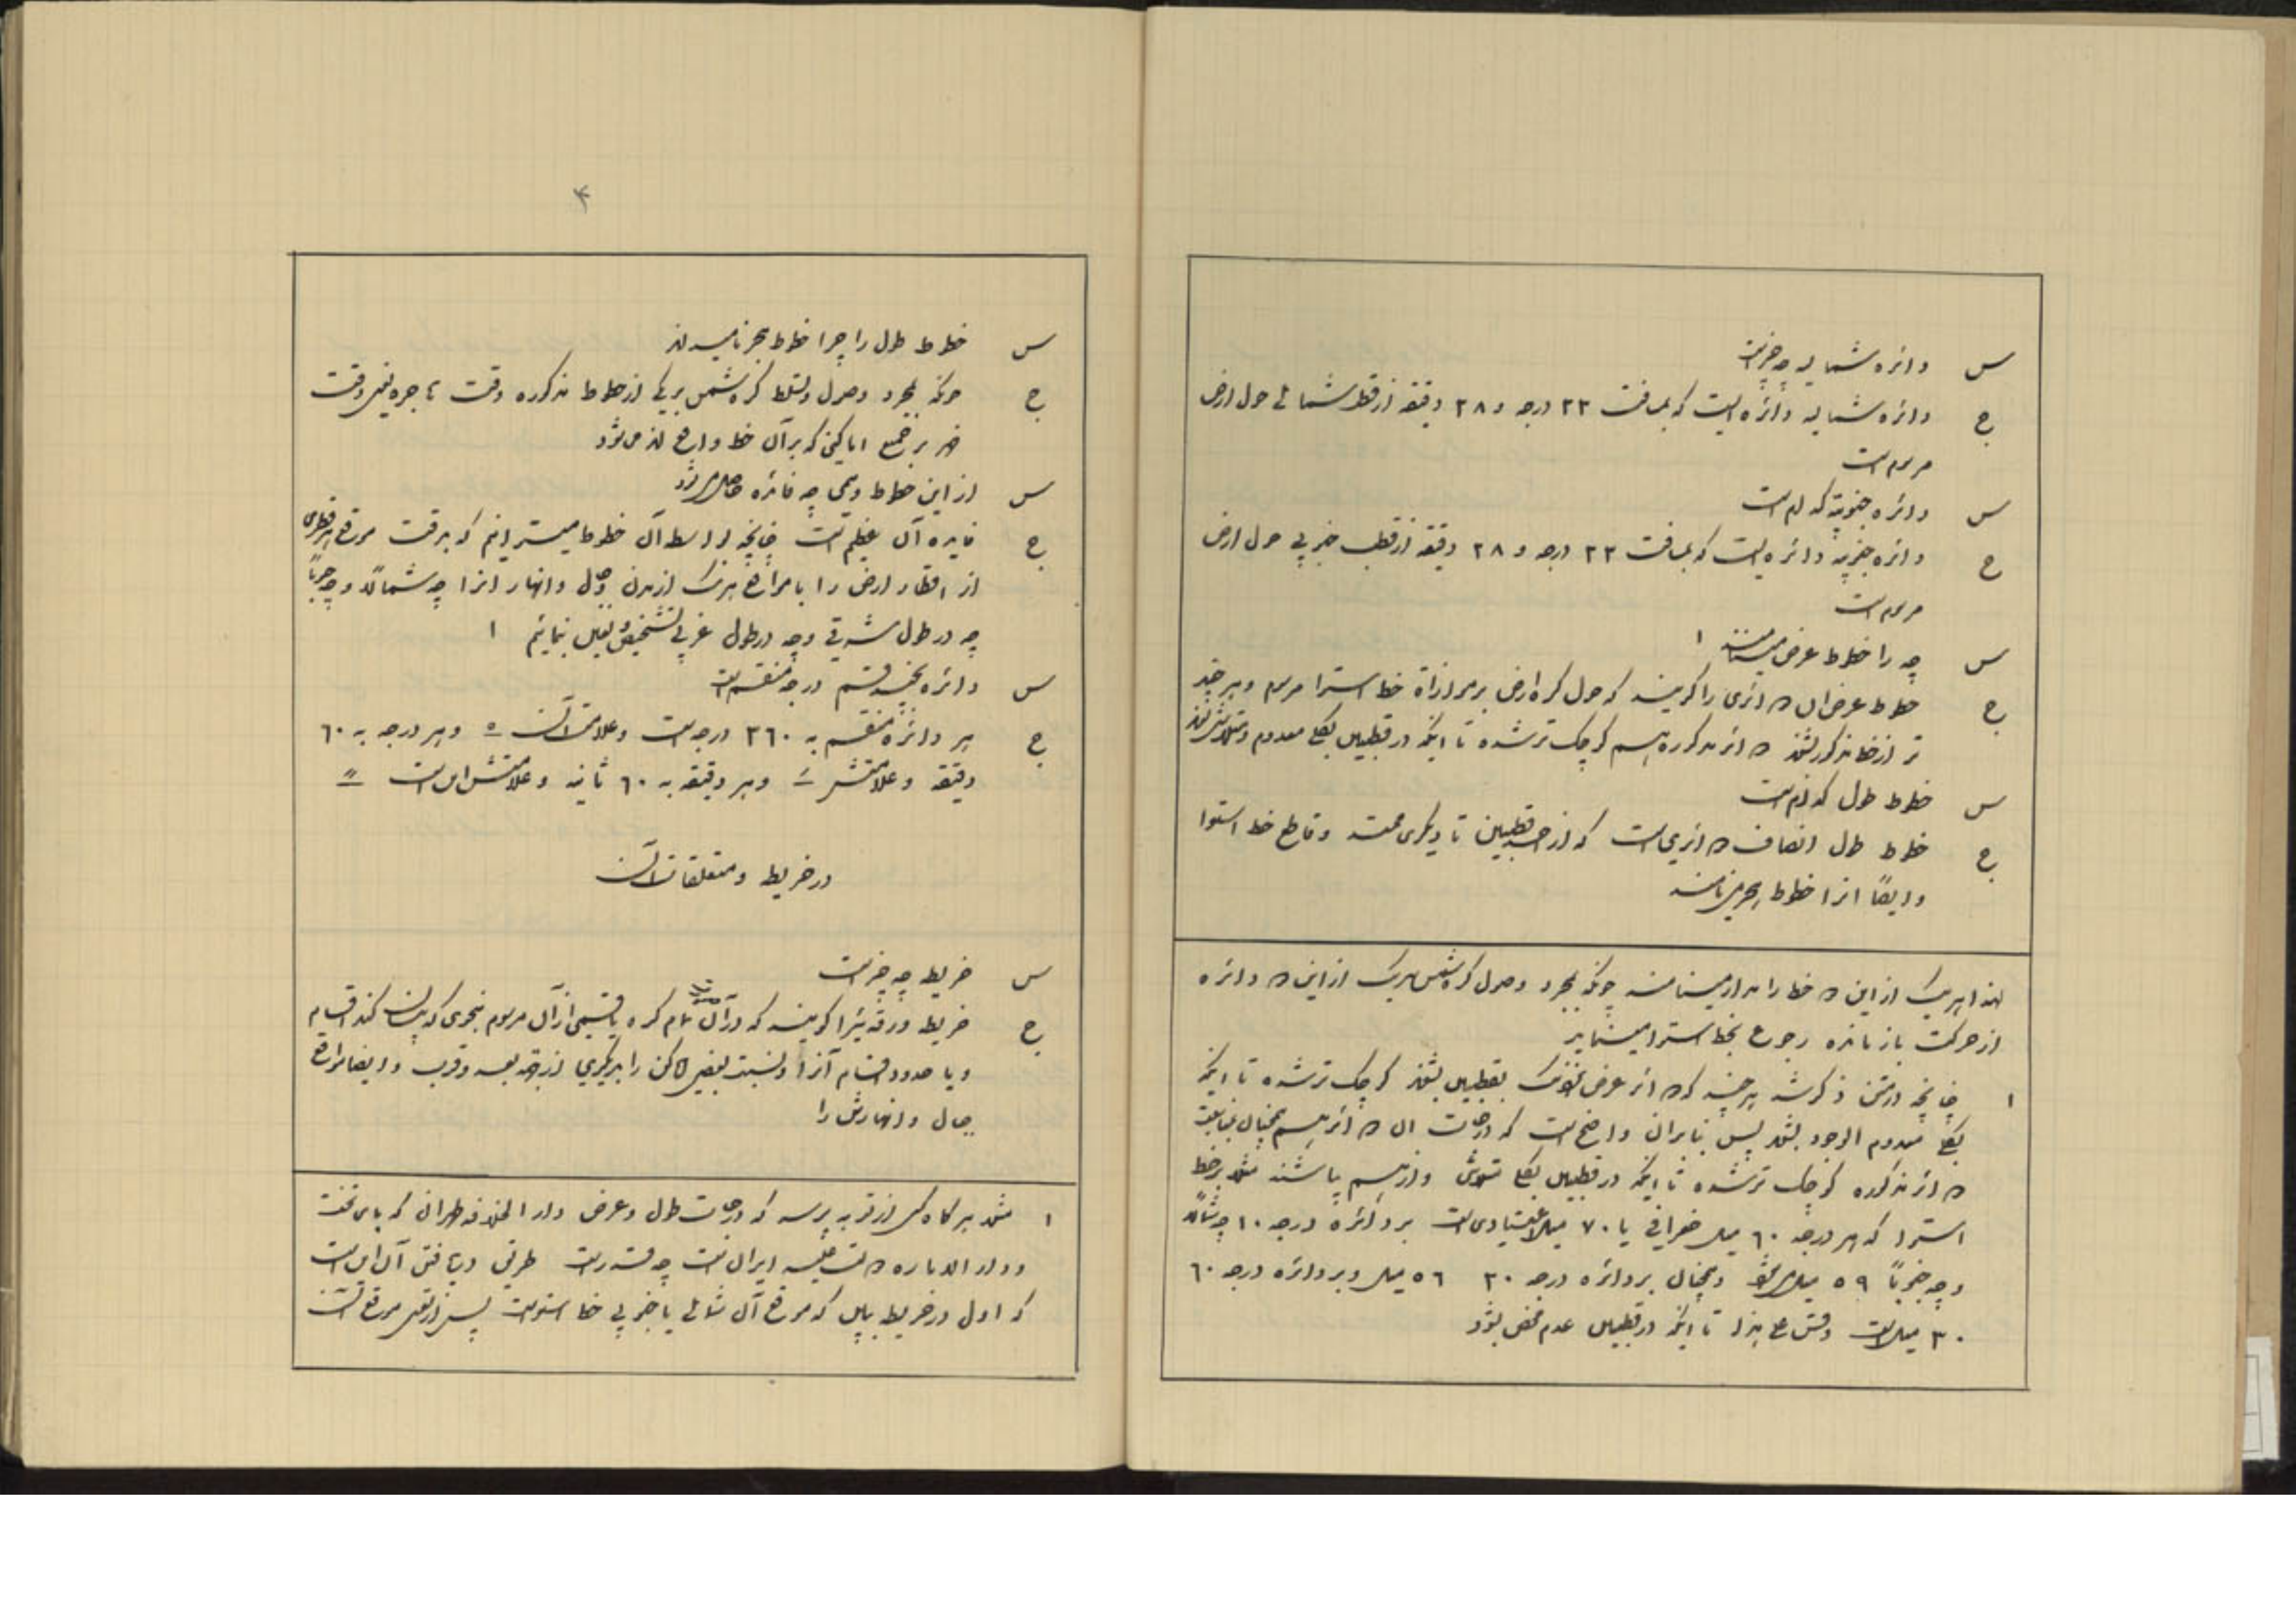 س دائره شمالیه چه چیز است
ج دائره شمالیه دائره ایست که بمسافت ۲۳ درجه و ۲۸ دقیقه از قطب شمالی حول ارض
مرسوم است
س دائره جنوبیه کدام است
ج دائره جنوبیه دائره ایست که بمسافت ۲۳ درجه و ۲۸ دقیقه از قطب جنوبی حول ارض
مرسوم است
س چه را خطوط عرض مینامند ۱
ج خطوط عرض ان دوائری را گویند که حول کره ارض بر موازاة خط استوا مرسوم و هر چند
تر از خط مذکور بشوند دوائر مذکوره هم کوچک تر شده تا اینکه در قطبین بکلی معدوم و
س خطوط طول کدام است
ج خطوط طول انصاف دوائری است که از احد قطبین تا دیگری ممتد و قاطع خط استوا
و ایضاً انرا خطوط هجر می نامند
لهذا هر یک از این دو خط را مدار مینامند چونکه بمجرد وصول کره شمس بهر یک از این دو دائره
از حرکت باز مانده رجوع بخط استوا مینماید
۱ چنانچه در متن ذکر شد هر چند که دوائر عرض نزدیک بقطبین بشوند کوچک تر شده تا اینکه
بکلی معدوم الوجود بشوند پس بنابران واضح است که درجات ان دوائر هم بهمچنان
دوائر مذکوره کوچک تر شده تا اینکه در قطبین بکلی متلاشی و از هم پاشند مثلا بر خط
استوا که هر درجه ۶۰ میل جغرافی یا ۷۰ میل اعتیادی است بر دائره درجه ۱۰ چه شمالاً
و چه جنوباً ۵۹ میل میشود و همچنان بر دائره درجه ۲۰ ۵۶ میل و بر دائره درجه ۶۰
۳۰ میل است وقس علی هذا تا اینکه در قطبین عدم محض بشود
۴
س خطوط طول را چرا خطوط هجر نامیده اند
ج چونکه بمجرد وصول وتسلط کره شمس بر یکی از خطوط مذکوره وقت هاجره یعنی وقت
ظهر بر جمیع اماکنی که بر آن خط واقع اند می شود
س از این خطوط وهمی چه فائده حاصل میشود
ج فایده آن عظیم است چنانچه بواسطه آن خطوط میتوانیم که بدقت موقع هر قطری
از اقطار ارض را با مواقع هر یک از مدن و جبال وانهار انرا چه شمالاً و چه جنوباً
چه در طول شرقی وچه در طول غربی تشخیص و تعیین نمائیم ۱
س دائره بچند قسم درجه منقسم است
ج هر دائره منقسم به ۳۶۰ درجه است وعلامت آن ° وهر درجه به ۶۰
دقیقه وعلامتش ´ وهر دقیقه به ۶۰ ثانیه وعلامتش این است ″
در خریطه ومتعلقات آن
س خریطه چه چیز است
ج خریطه ورقه ئیرا گویند که در آن تمام کره یا قسمی از آن مرسوم بنحوی که بیان کند اقسام
ویا حدود اقسام آنرا ونسبت بعض اماکن را بدیگری از جهة بعد وقرب وایضا مواقع
جبال وانهارش را
۱ مثلا هر گاه کسی از تو بپرسد که درجات طول وعرض دار الخلافه طهران که پای تخت
ودار الاماره دولت علیه ایران است چه قدر است طریق دریافتن آن این است
که اول در خریطه ببین که موقع آن شمالی یا جنوبی خط استواست پس از تعین موقع آن